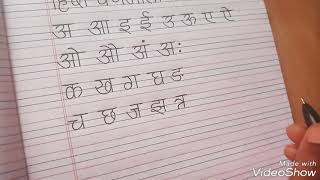 हिन्दी वर्णमाला
अ आ इ ई उ ऊ ए ऐ
ओ औ अं अः
क ख ग घ ङ
च छ ज झ ञ
Made with
VideoShow